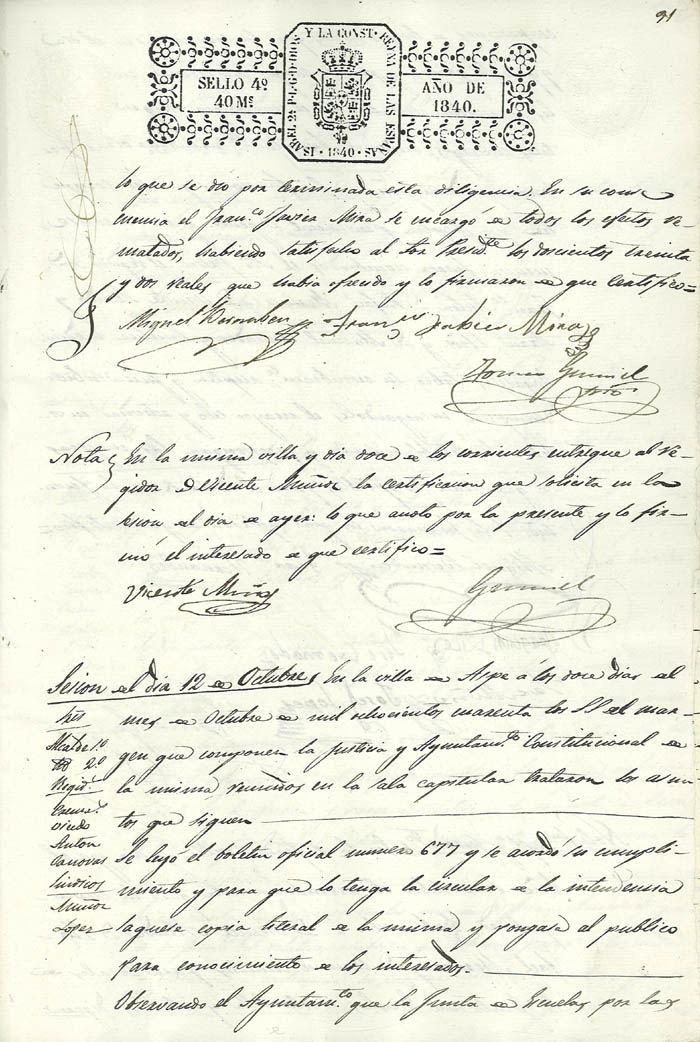 91
ISABEL 2ª P. L. G. DE DIOS Y LA CONST. REYNA DE LAS ESPAÑAS
· 1840 ·
SELLO 4º
40 Ms
AÑO DE
1840.
lo que se dió por terminada esta diligencia. En su conse
cuencia el Fran.co Javier Mira se encargó de todos los efectos re-
matados, habiendo satisfecho al Sor Presid.te los doscientos treinta
y dos reales que habia ofrecido y lo firmaron de que certifico=
Miguel Bernabeu
Fran.co Jabier Mira
Tomas Gumiel
srio
Nota
En la misma villa y dia doce de los corrientes entregue al re-
gidor D. Vicente Muñoz la certificacion que solicita en la
sesion del dia de ayer: lo que anoto por la presente y lo fir-
mó el interesado de que certifico=
Vicente Muñoz
Gumiel
Sesion del dia 12 de Octubre
En la villa de Aspe á los doce dias del
mes de Octubre de mil ochocientos cuarenta los SS. del mar-
gen que componen la Justicia y Ayuntam.to Constitucional de
la misma reunidos en la sala capitular trataron los asun-
tos que siguen
Sres
Alcalde 1.º
2.º
Regid.s
Anton
Canovas
Sindicos
Muñoz
Lopez
Se leyó el boletin oficial numero 677 y se acordó su cumpli-
miento y para que lo tenga la circular de la intendencia
saquese copia literal de la misma y pongase al publico
para conocimiento de los interesados.
Observando el Ayuntam.to que la Junta de Escuelas por la